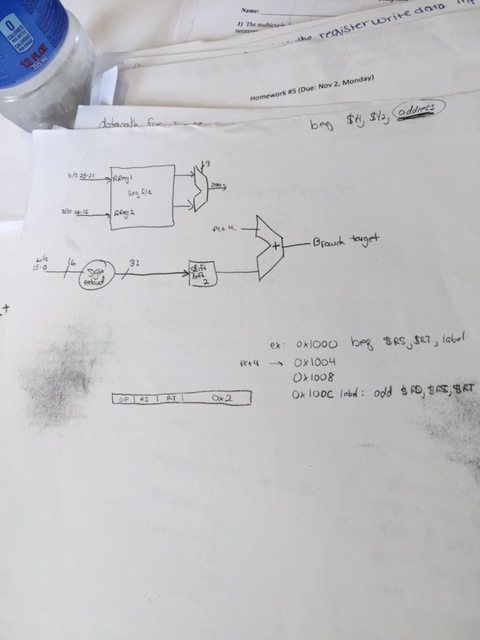 0
CALORIES
12 FL OZ
Name:
1) The multicycle
the register write data
Homework #5 (Due: Nov 2, Monday)
datapath for
beq $t1, $t2, address
bits 25-21
RReg 1
Reg file
RReg 2
PC+4
+
Branch target
bits
15-0
Sign
extend
31
shift
left
2
ex: 0x1000 beq $RS, $RT, label
PC+4 → 0x1004
0x1008
0x100C label: add $RD, $RS, $RT
OP | RS | RT | 0x2